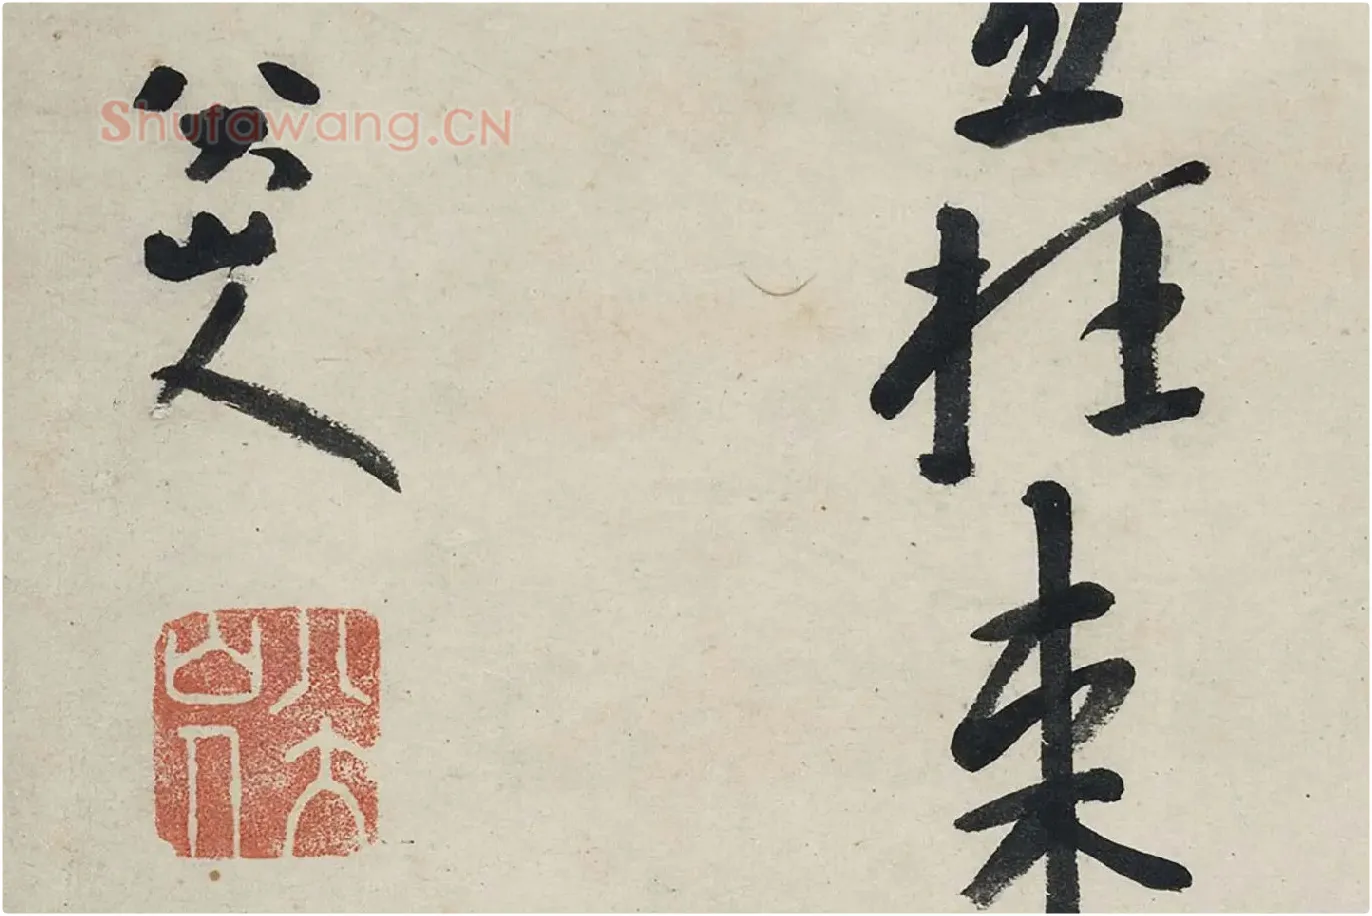 枉
八大山人
八大山人
Shufawang.CN